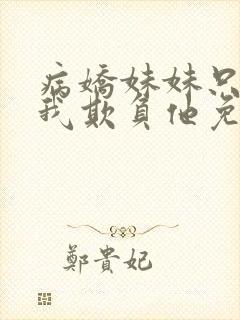 病嬌妹妹只
我欺負他免
鄭貴妃